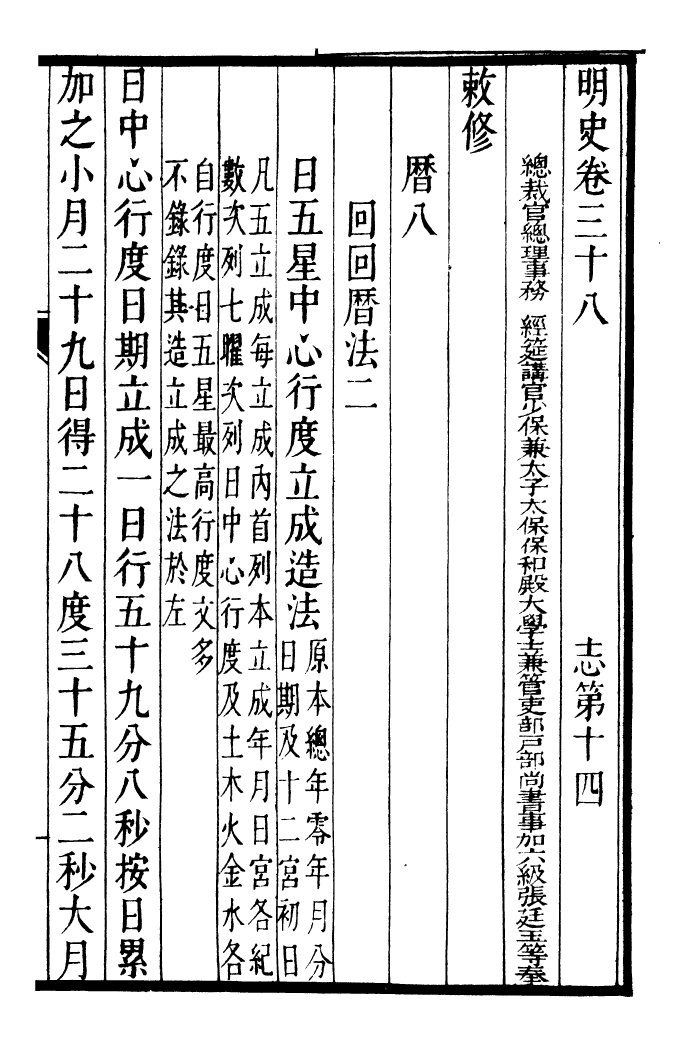 明史卷三十八　志第十四
總裁官總理事務　經筵講官少保兼太子太保保和殿大學士兼管吏部戶部尚書事加六級張廷玉等奉
敕修
曆八
回回曆法二
日五星中心行度立成造法
原本總年零年月分
日期及十二宮初日
凡五立成每立成內首列本立成年月日宮各紀
數次列七曜次列日中心行度及土木火金水各
自行度日五星最高行度文多
不錄錄其造立成之法於左
日中心行度日期立成一日行五十九分八秒按日累
加之小月二十九日得二十八度三十五分二秒大月